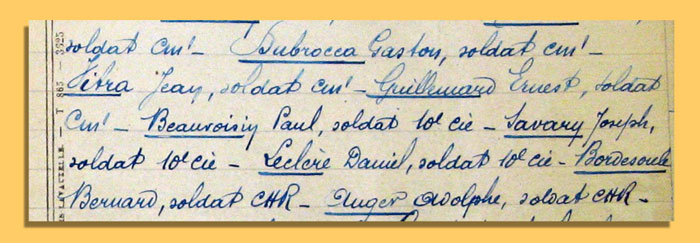 soldat CM¹ — Dubrocca Gaston, soldat CM¹ —
Jean, soldat CM¹ — Guillemard Ernest, soldat
CM¹ — Beauvoisin Paul, soldat 10e cie — Savary Joseph,
soldat 10e cie — Leclère Daniel, soldat 10e cie — Bordesoule
Bernard, soldat CHR — Auger Adolphe, soldat CHR —
T 865 — 3625